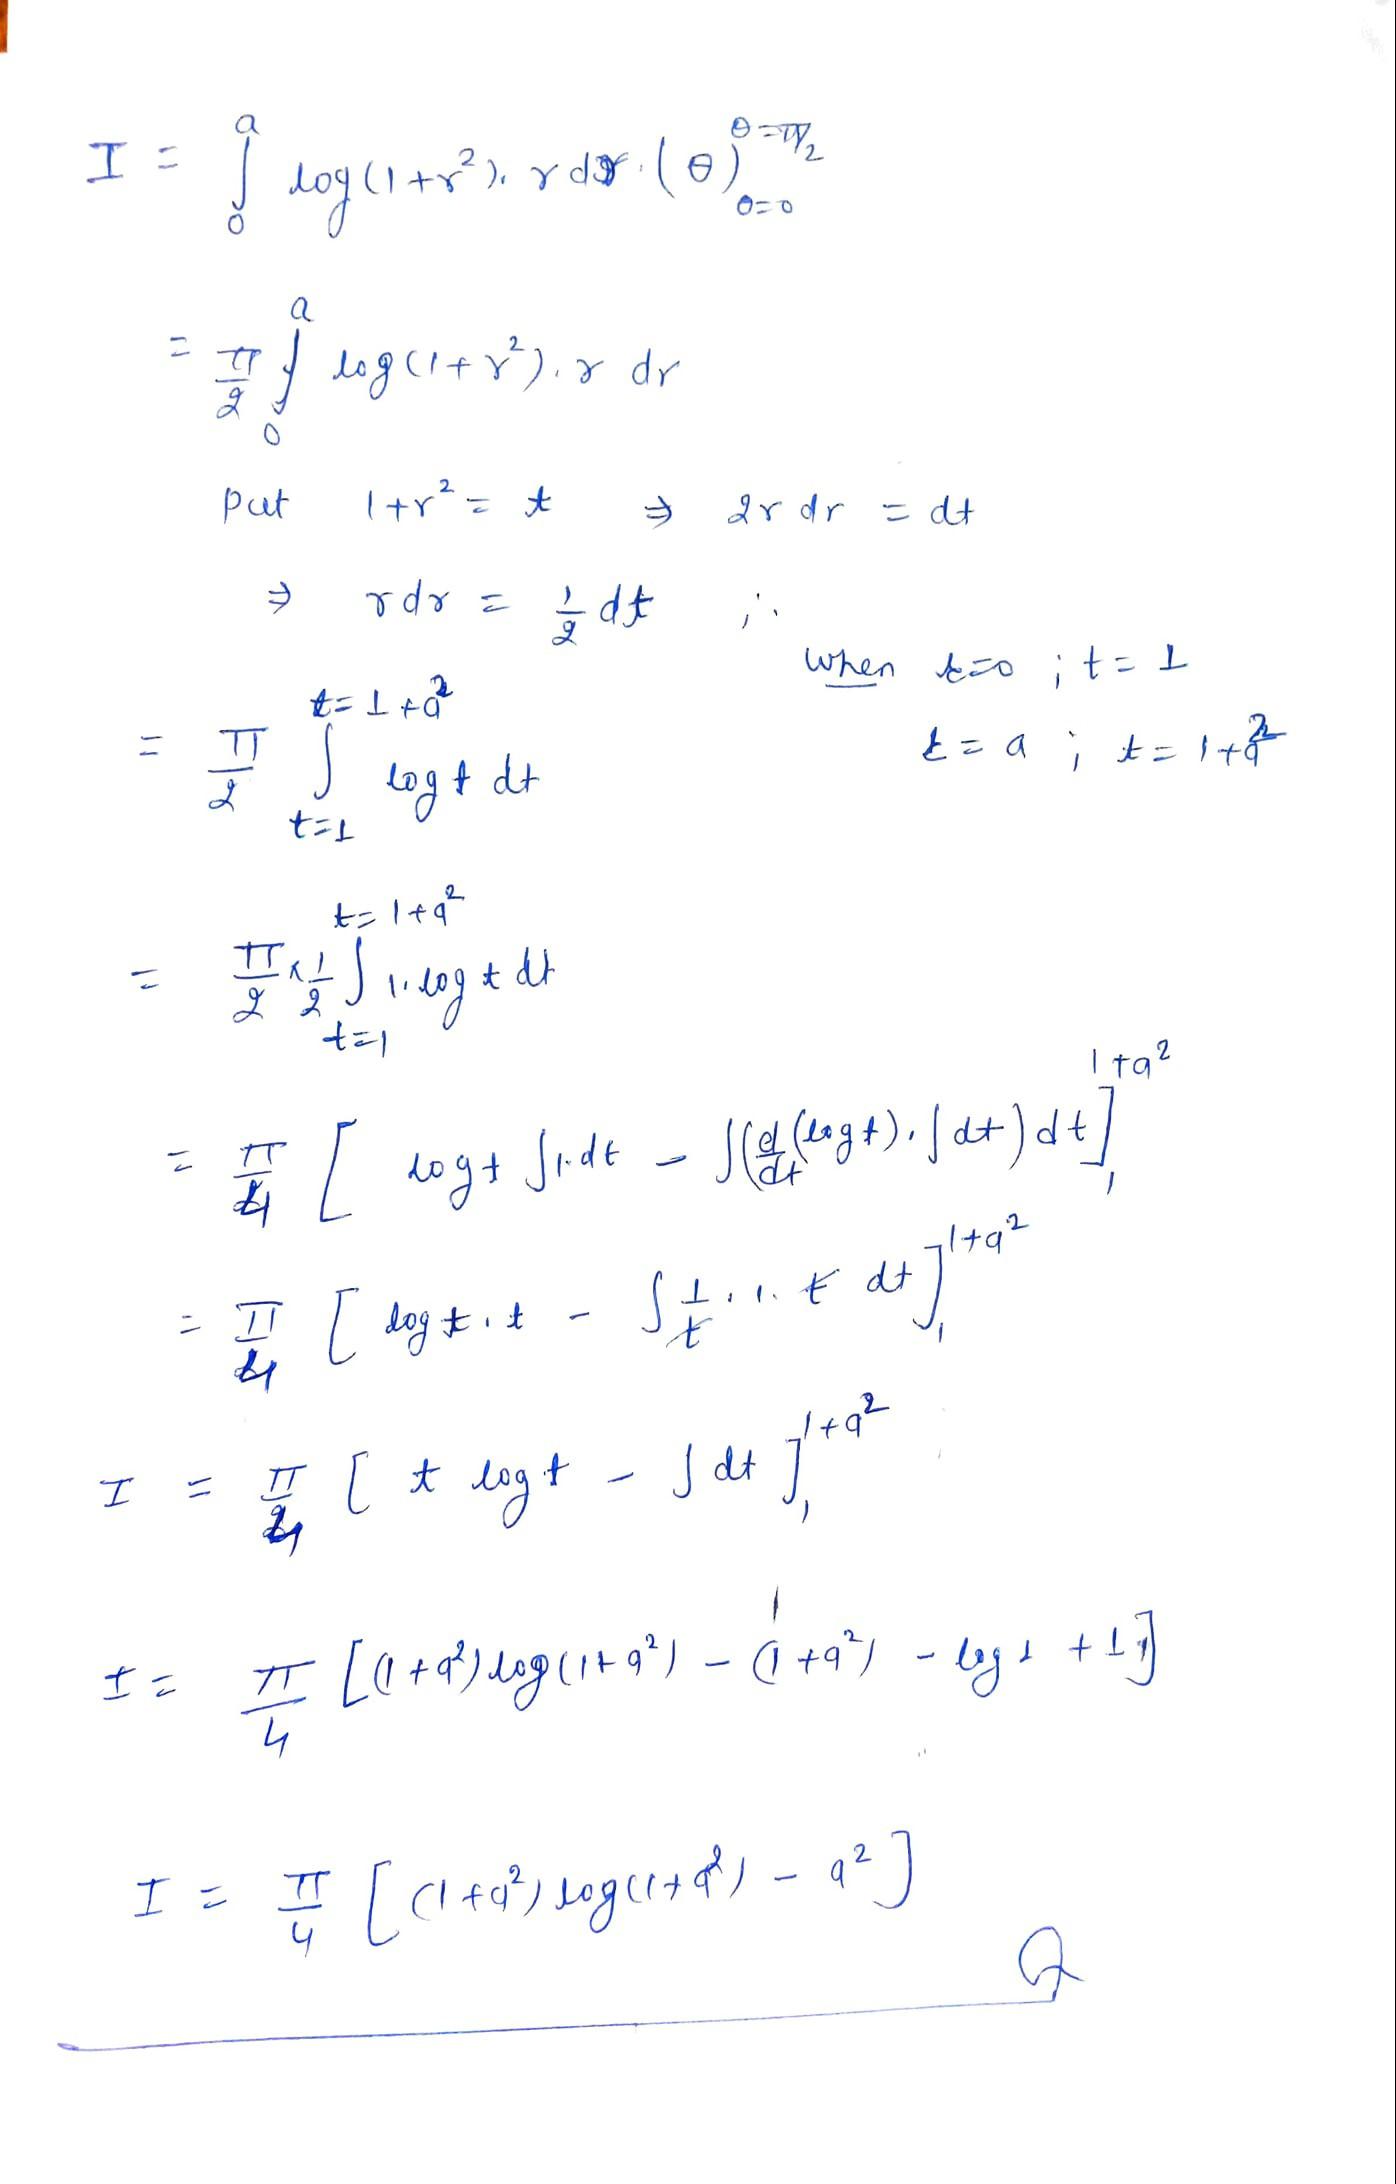 I = ∫₀ᵃ log(1+r²). r dr. (θ)_{θ=0}^{θ=π/2}
= π/2 ∫₀ᵃ log(1+r²). r dr
put 1+r² = t ⇒ 2r dr = dt
⇒ r dr = 1/2 dt ;.
when t=0 ; t=1
t=a ; t=1+a²
= π/2 ∫_{t=1}^{t=1+a²} log t dt
= π/2 × 1/2 ∫_{t=1}^{t=1+a²} 1. log t dt
= π/4 [ log t ∫1.dt - ∫(d/dt (log t). ∫dt) dt ]₁^{1+a²}
= π/4 [ log t . t - ∫ 1/t . 1. t dt ]₁^{1+a²}
I = π/4 [ t log t - ∫ dt ]₁^{1+a²}
I = π/4 [(1+a²) log(1+a²) - (1+a²) - log 1 + 1]
I = π/4 [ (1+a²) log(1+a²) - a² ]